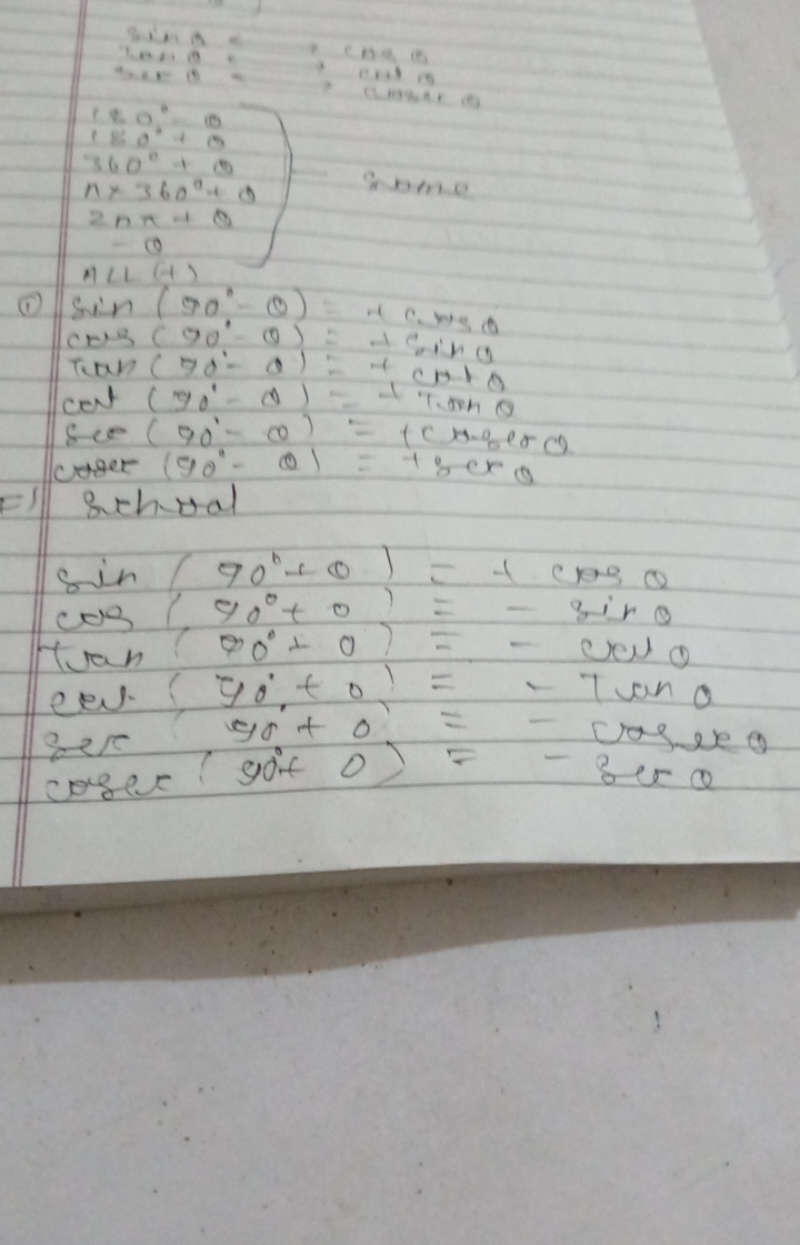 sin θ =
, cos θ
tan θ =
, cot θ
sec θ =
, cosec θ
180° - θ
180° + θ
360° + θ
n × 360° + θ
2nπ + θ
- θ
same
ALL (+)
① sin (90° - θ) = + cos θ
cos (90° - θ) = + sin θ
Tan (90° - θ) = + cot θ
cot (90° - θ) = + Tan θ
sec (90° - θ) = + cosec θ
cosec (90° - θ) = + sec θ
=) School
sin (90° + θ) = + cos θ
cos (90° + θ) = - sin θ
Tan (90° + θ) = - cot θ
cot (90° + θ) = - Tan θ
sec (90° + θ) = - cosec θ
cosec (90° + θ) = - sec θ